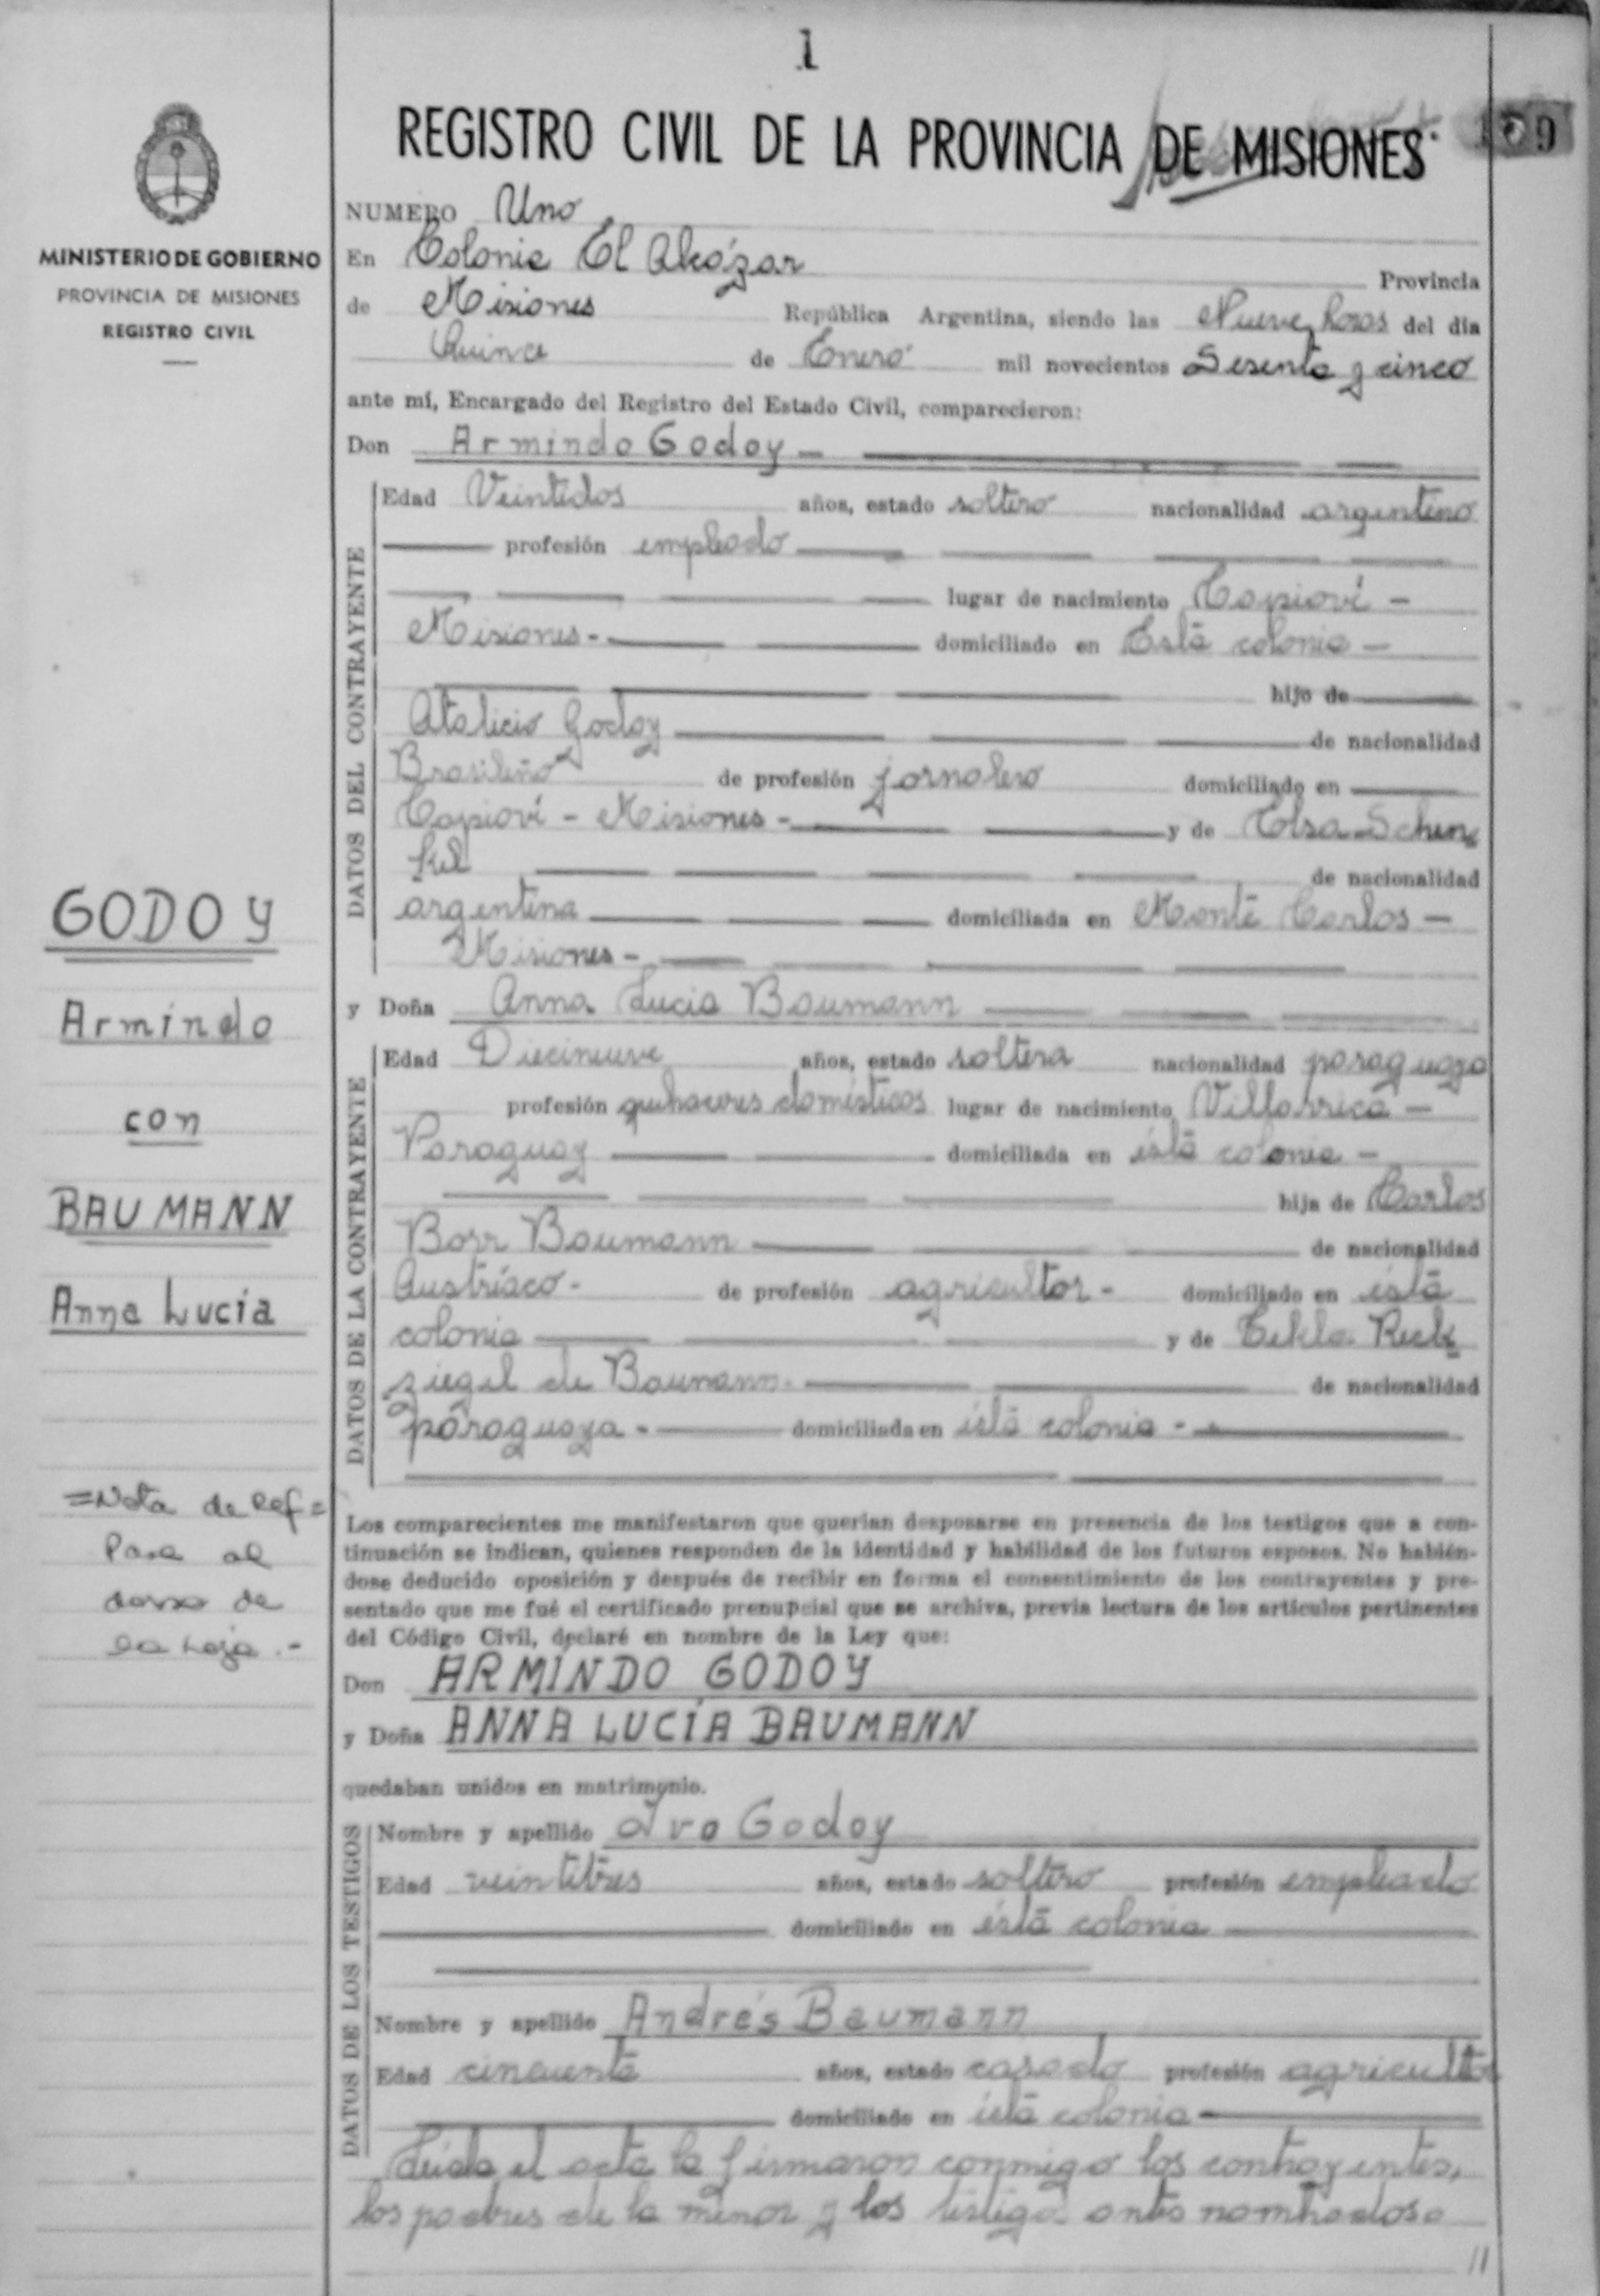 1
REGISTRO CIVIL DE LA PROVINCIA DE MISIONES
9
MINISTERIO DE GOBIERNO
PROVINCIA DE MISIONES
REGISTRO CIVIL
NUMERO Uno
En Colonia El Alcázar Provincia
de Misiones República Argentina, siendo las Nueve horas del día
Quince de Enero mil novecientos Sesenta y cinco
ante mí, Encargado del Registro del Estado Civil, comparecieron:
Don Armindo Godoy
DATOS DEL CONTRAYENTE
Edad Veintidos años, estado soltero nacionalidad argentino
profesión empleado
lugar de nacimiento Capioví -
Misiones - domiciliado en Esta colonia -
hijo de
Atalicio Godoy de nacionalidad
Brasileño de profesión jornalero domiciliado en
Capioví - Misiones - y de Elsa Schen
kel de nacionalidad
argentina domiciliada en Monte Carlos -
Misiones -
y Doña Anna Lucia Baumann
DATOS DE LA CONTRAYENTE
Edad Diecinueve años, estado soltera nacionalidad paraguaya
profesión quehaceres domésticos lugar de nacimiento Villarrica -
Paraguay domiciliada en ésta colonia -
hija de Carlos
Borr Baumann de nacionalidad
Austríaco - de profesión agricultor - domiciliado en ésta
colonia y de Tekla Reck
ziegel de Baumann - de nacionalidad
paraguaya - domiciliada en ésta colonia -
GODOY
Armindo
con
BAUMANN
Anna Lucía
=Nota de Ref=
Pasa al
dorso de
la hoja.-
Los comparecientes me manifestaron que querían desposarse en presencia de los testigos que a con-
tinuación se indican, quienes responden de la identidad y habilidad de los futuros esposos. No habién-
dose deducido oposición y después de recibir en forma el consentimiento de los contrayentes y pre-
sentado que me fué el certificado prenupcial que se archiva, previa lectura de los artículos pertinentes
del Código Civil, declaré en nombre de la Ley que:
Don ARMINDO GODOY
y Doña ANNA LUCÍA BAUMANN
quedaban unidos en matrimonio.
DATOS DE LOS TESTIGOS
Nombre y apellido Ivo Godoy
Edad veintitrés años, estado soltero profesión empleado
domiciliado en ésta colonia
Nombre y apellido Andrés Baumann
Edad cincuenta años, estado casado profesión agricultor
domiciliado en ésta colonia
Leída el acta la firmaron conmigo los contrayentes,
los padres de la menor y los testigos antes nombrados
//